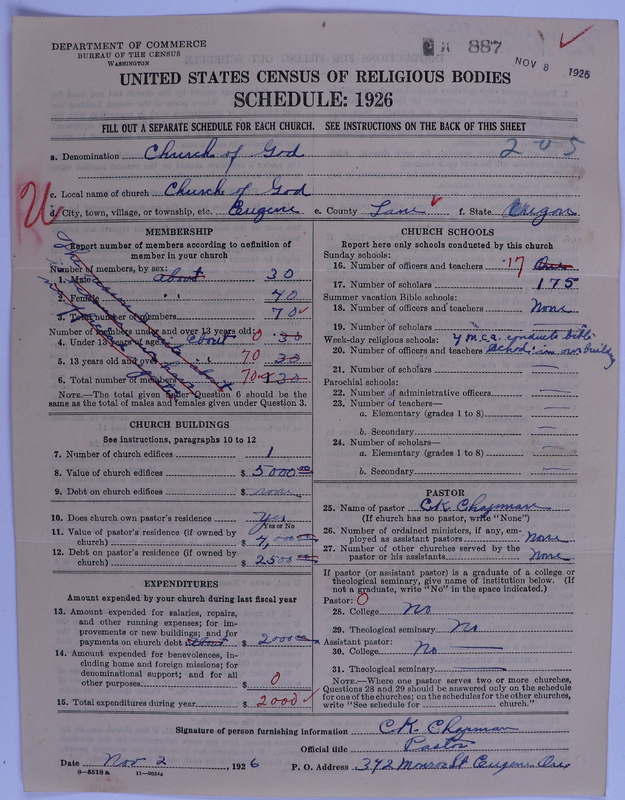 DEPARTMENT OF COMMERCE
BUREAU OF THE CENSUS
WASHINGTON
887
NOV 8 1926
UNITED STATES CENSUS OF RELIGIOUS BODIES
SCHEDULE: 1926
FILL OUT A SEPARATE SCHEDULE FOR EACH CHURCH. SEE INSTRUCTIONS ON THE BACK OF THIS SHEET
205
a. Denomination Church of God
c. Local name of church Church of God
d. City, town, village, or township, etc. Eugene e. County Lane f. State Oregon
U
MEMBERSHIP
Report number of members according to definition of
member in your church
Number of members, by sex:
1. Male about 30
2. Female " 40
3. Total number of members 70
Number of members under and over 13 years old:
4. Under 13 years of age about 0 30
5. 13 years old and over 70 30
6. Total number of members 70 30
NOTE.—The total given under Question 6 should be
same as the total of males and females given under Question 3.
CHURCH BUILDINGS
See instructions, paragraphs 10 to 12
7. Number of church edifices 1
8. Value of church edifices $ 5000 00
9. Debt on church edifices $ none
10. Does church own pastor's residence Yes
Yes or No
11. Value of pastor's residence (if owned by
church) $ 4,000 00
12. Debt on pastor's residence (if owned by
church) $ 2500 00
EXPENDITURES
Amount expended by your church during last fiscal year
13. Amount expended for salaries, repairs,
and other running expenses; for im-
provements or new buildings; and for
payments on church debt about $ 2000 00
14. Amount expended for benevolences, in-
cluding home and foreign missions; for
denominational support; and for all
other purposes $ 0
15. Total expenditures during year $ 2000
CHURCH SCHOOLS
Report here only schools conducted by this church
Sunday schools:
16. Number of officers and teachers 17
17. Number of scholars 175
Summer vacation Bible schools:
18. Number of officers and teachers None
19. Number of scholars
Week-day religious schools: Y.M.C.A. conducts bible
20. Number of officers and teachers school in our building
21. Number of scholars
Parochial schools:
22. Number of administrative officers
23. Number of teachers—
a. Elementary (grades 1 to 8)
b. Secondary
24. Number of scholars—
a. Elementary (grades 1 to 8)
b. Secondary
PASTOR
25. Name of pastor C.K. Chapman
(If church has no pastor, write "None")
26. Number of ordained ministers, if any, em-
ployed as assistant pastors None
27. Number of other churches served by the
pastor or his assistants None
If pastor (or assistant pastor) is a graduate of a college or
theological seminary, give name of institution below. (If
not a graduate, write "No" in the space indicated.)
Pastor: 0
28. College No
29. Theological seminary No
Assistant pastor:
30. College No
31. Theological seminary
NOTE.—Where one pastor serves two or more churches,
Questions 28 and 29 should be answered only on the schedule
for one of the churches; on the schedules for the other churches,
write "See schedule for church."
Signature of person furnishing information C.K. Chapman
Official title Pastor
Date Nov 2, 1926 P. O. Address 372 Monroe St Eugene Ore
8-5518 a 11-9054a